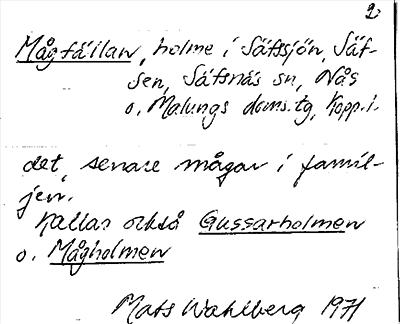 2.
Mågfällan, holme i Säfssjön, Säf-
sen, Säfsnäs sn, Nås
o. Malungs doms.tg, Kopp.l.
det, senare mågar i famil-
jen.
Kallas också Gussarholmen
o. Mågholmen
Mats Wahlberg 1971